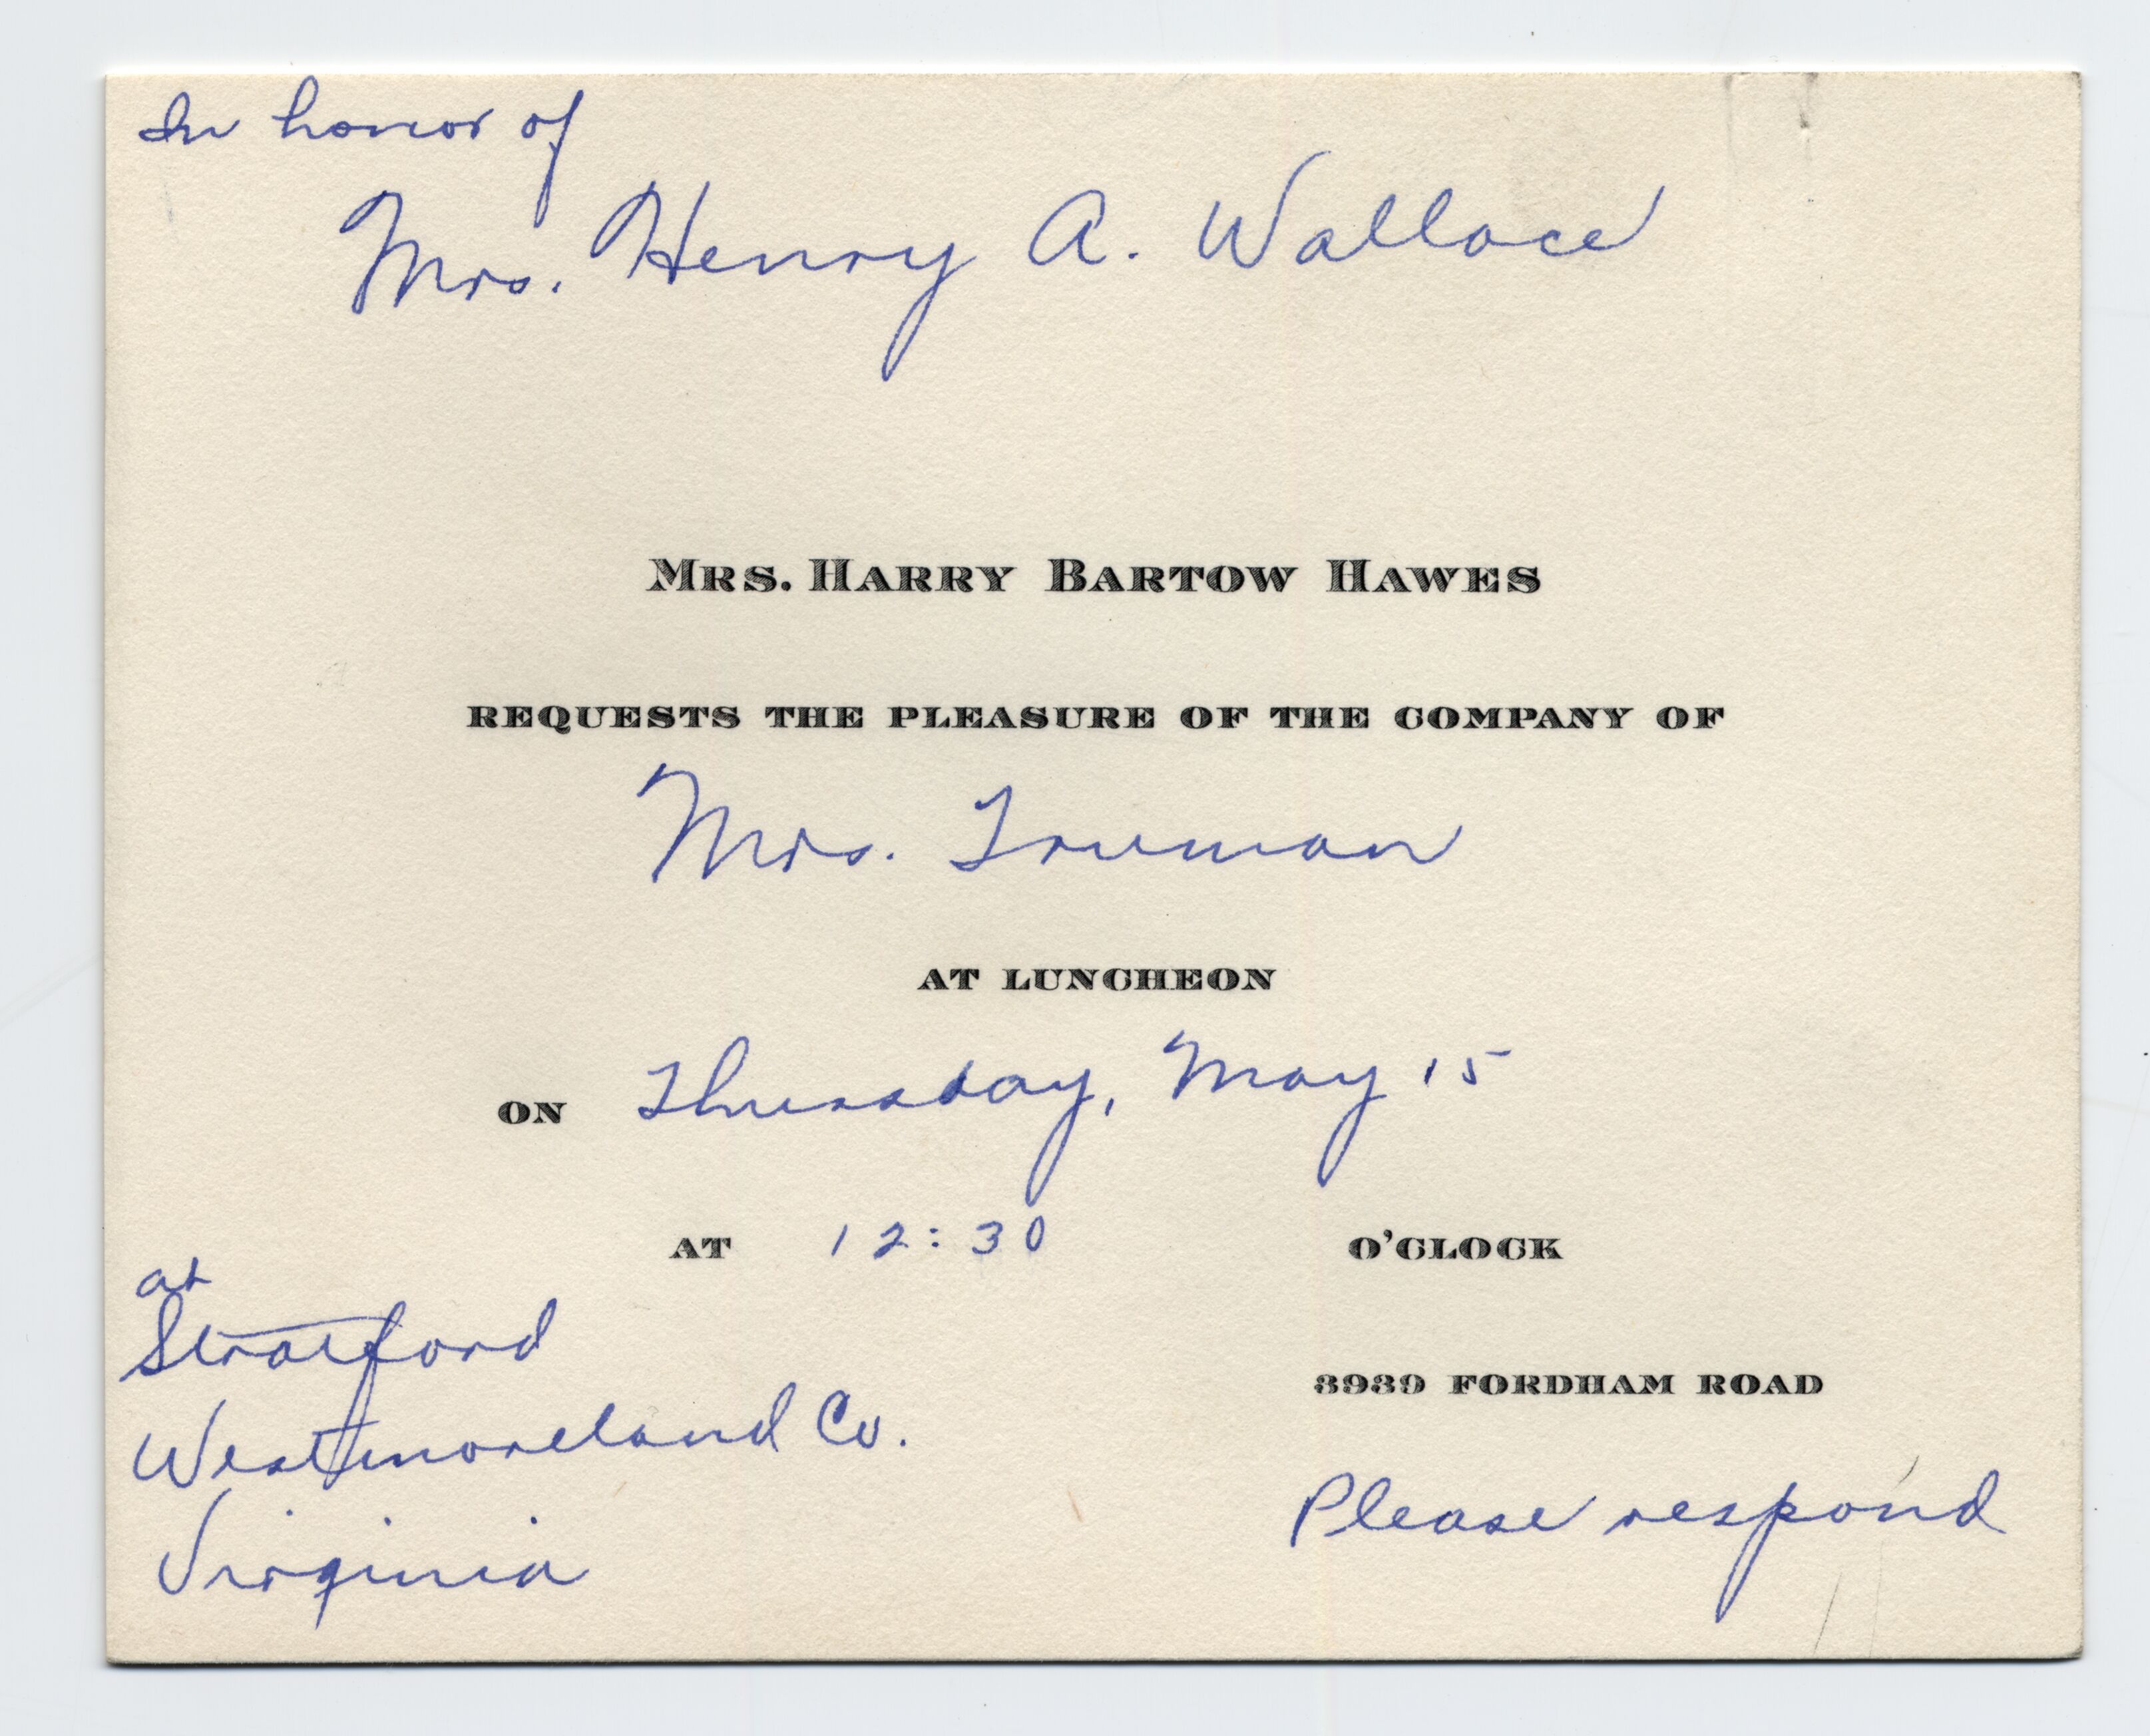 In honor of
Mrs. Henry A. Wallace
MRS. HARRY BARTOW HAWES
REQUESTS THE PLEASURE OF THE COMPANY OF
Mrs. Truman
AT LUNCHEON
ON Thursday, May 15
AT 12:30 O'CLOCK
at
Stratford
Westmoreland Co.
Virginia
3939 FORDHAM ROAD
Please respond